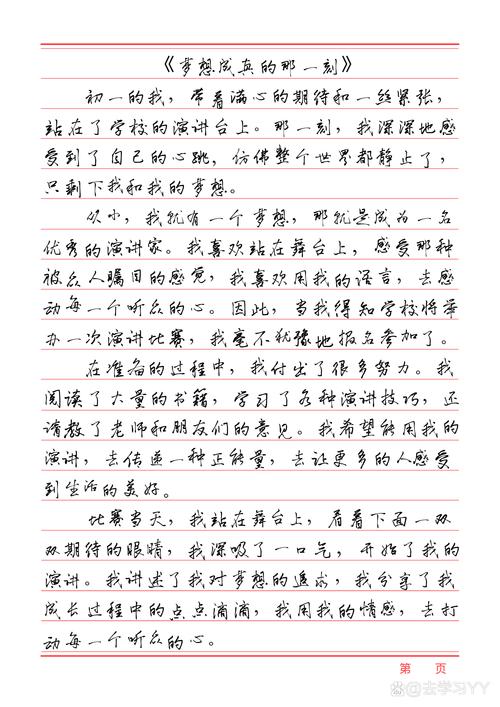 《梦想成真的那一刻》
初一的我，带着满心的期待和一丝紧张，
站在了学校的演讲台上。那一刻，我深深地感
受到了自己的心跳，仿佛整个世界都静止了，
只剩下我和我的梦想。
从小，我就有一个梦想，那就是成为一名
优秀的演讲家。我喜欢站在舞台上，感受那种
被众人瞩目的感觉，我喜欢用我的语言，去感
动每一个听众的心。因此，当我得知学校将举
办一次演讲比赛，我毫不犹豫地报名参加了。
在准备的过程中，我付出了很多努力。我
阅读了大量的书籍，学习了各种演讲技巧，还
请教了老师和朋友们的意见。我希望能用我的
演讲，去传递一种正能量，去让更多的人感受
到生活的美好。
比赛当天，我站在舞台上，看着下面一双
双期待的眼睛，我深吸了一口气，开始了我的
演讲。我讲述了我对梦想的追求，我分享了我
成长过程中的点点滴滴，我用我的情感，去打
动每一个听众的心。
第 页
@去学习YY